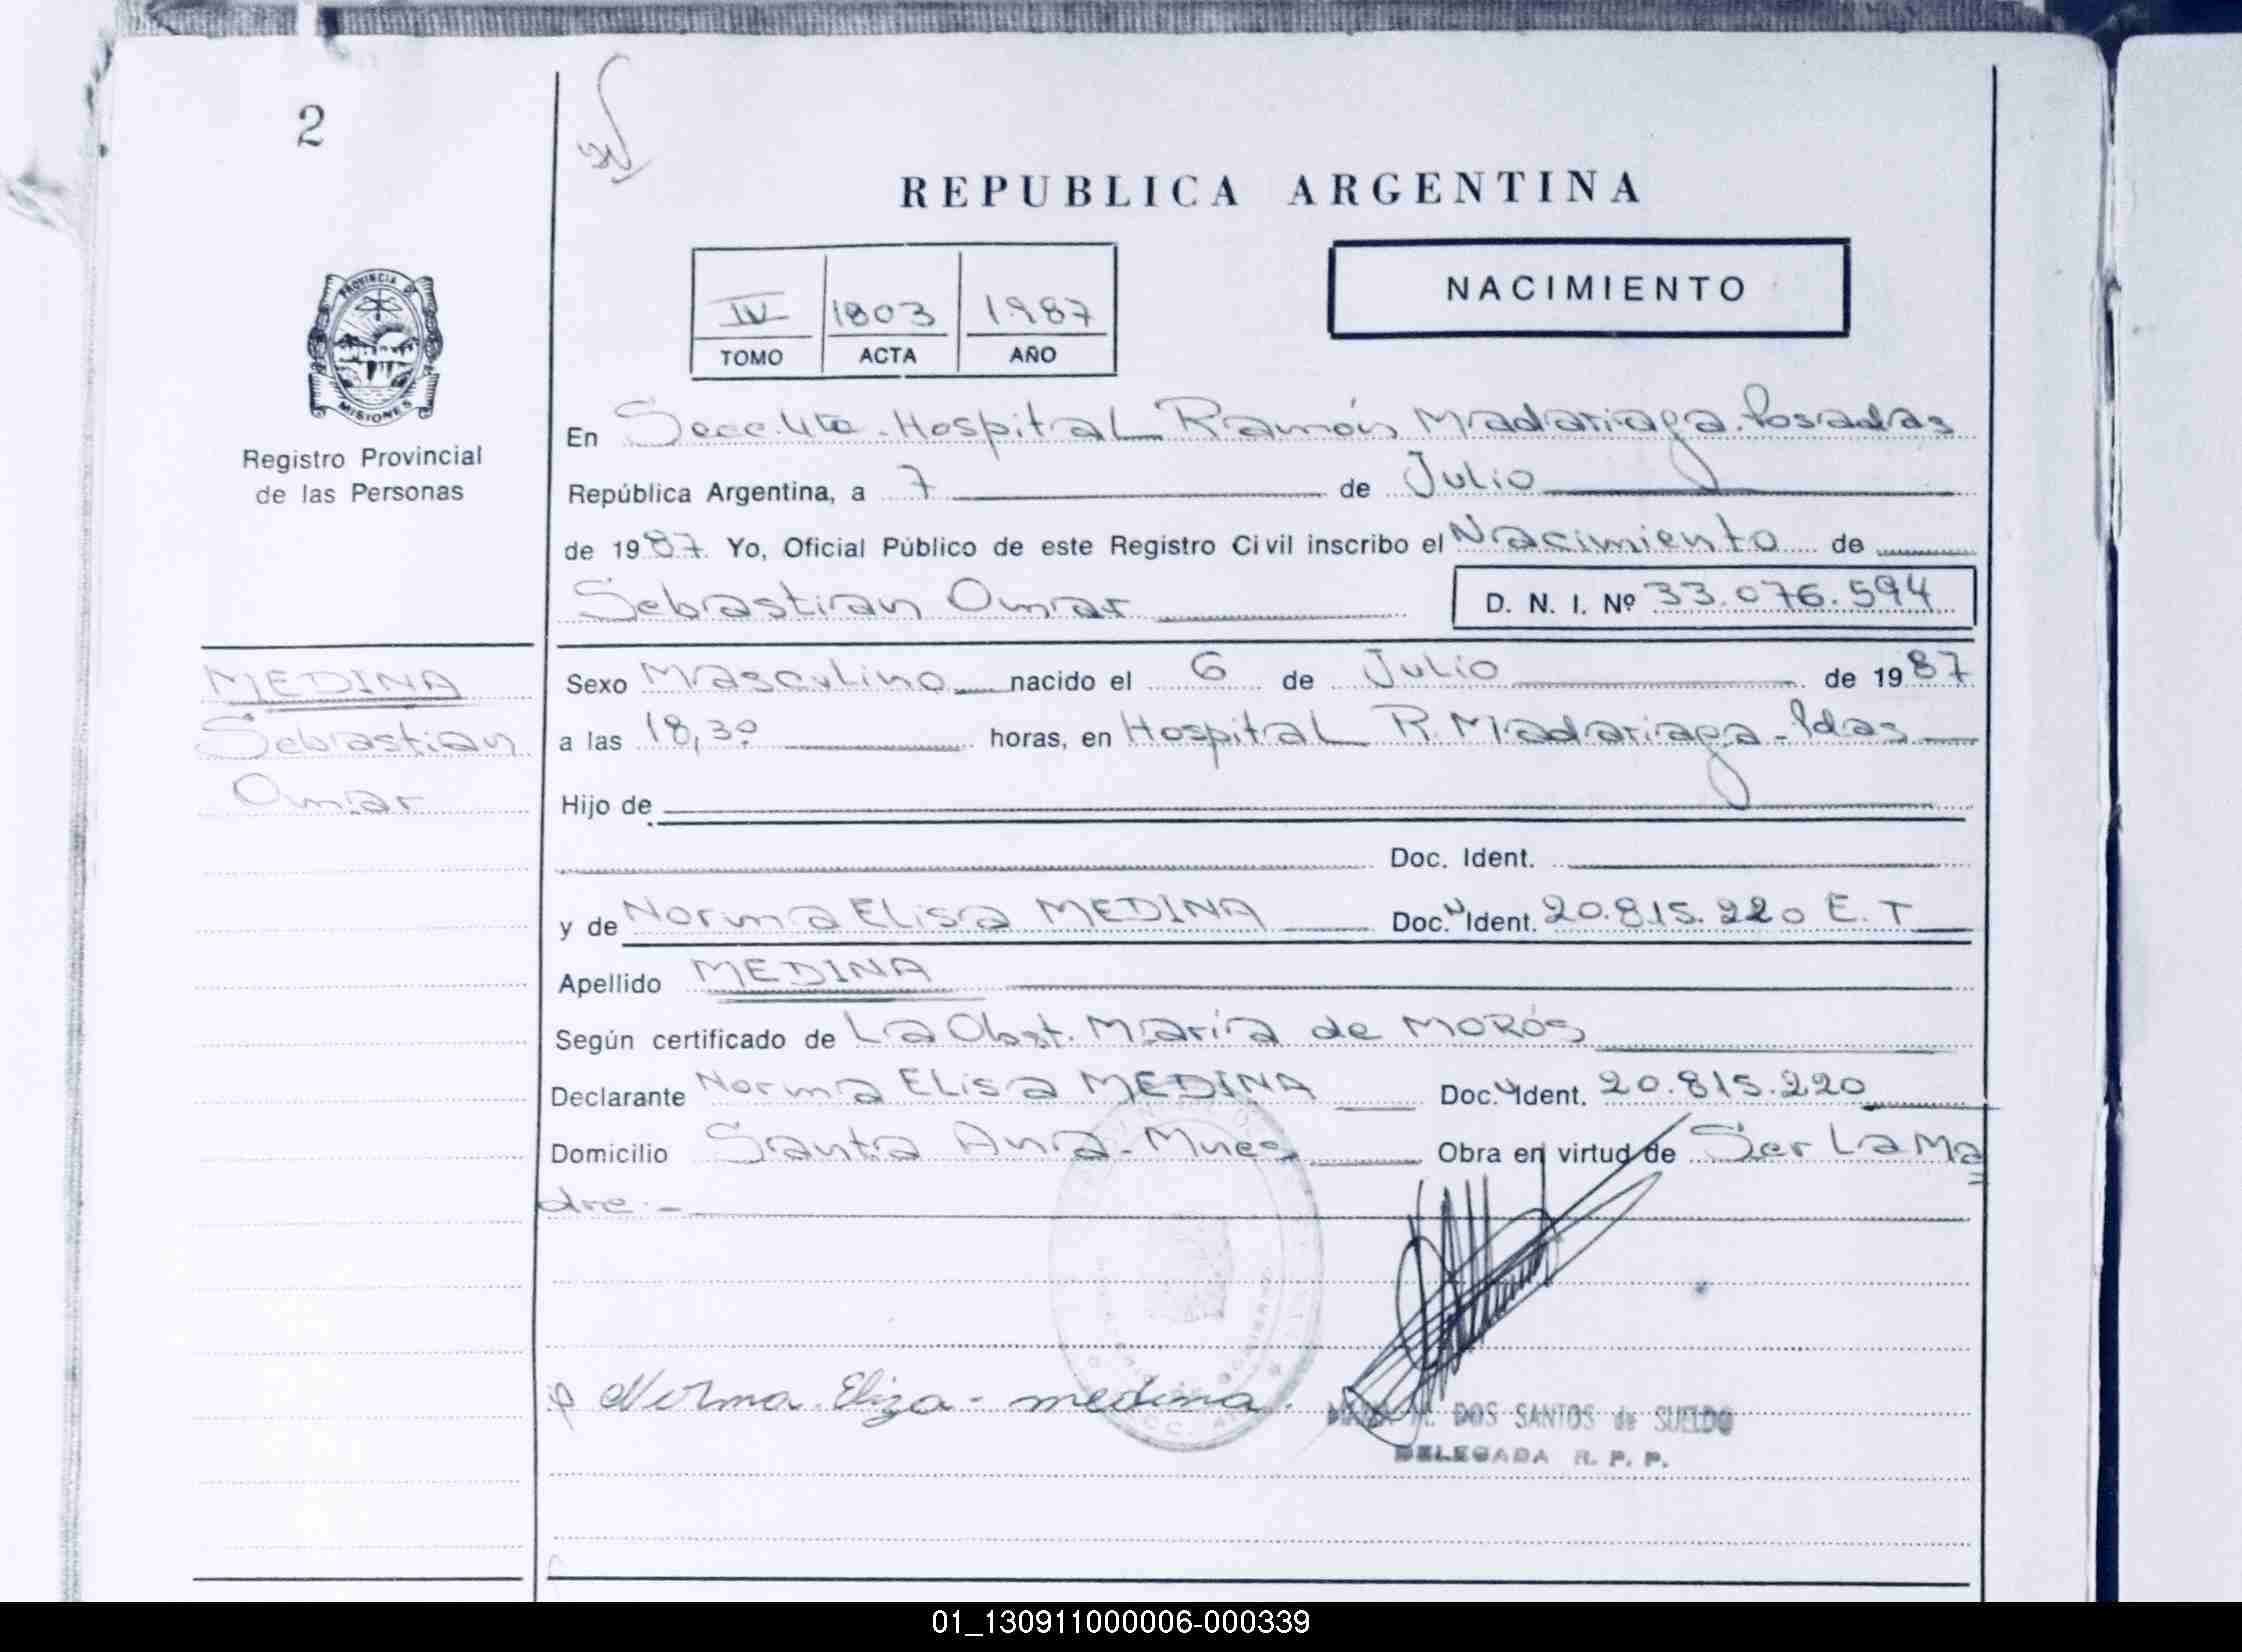 2
REPUBLICA ARGENTINA
IV 1803 1987
TOMO ACTA AÑO
NACIMIENTO
PROVINCIA DE
MISIONES
Registro Provincial
de las Personas
En Secc. 4ta. Hospital Ramón Madariaga. Posadas
República Argentina, a 7 de Julio
de 1987. Yo, Oficial Público de este Registro Civil inscribo el Nacimiento de
Sebastian Omar D. N. I. Nº 33.076.594
MEDINA
Sebastian
Omar
Sexo Masculino nacido el 6 de Julio de 1987
a las 18,30 horas, en Hospital R. Madariaga - Pdas
Hijo de
Doc. Ident.
y de Norma Elisa MEDINA Doc. Ident. 20.815.220 E. T
Apellido MEDINA
Según certificado de La Obst. María de MORÓS
Declarante Norma Elisa MEDINA Doc. Ident. 20.815.220
Domicilio Santa Ana - Mnes Obra en virtud de Ser La Ma
dre.-
Norma. Eliza - medina.
DOS SANTOS de SUELDO
DELEGADA R. P. P.
01_130911000006-000339